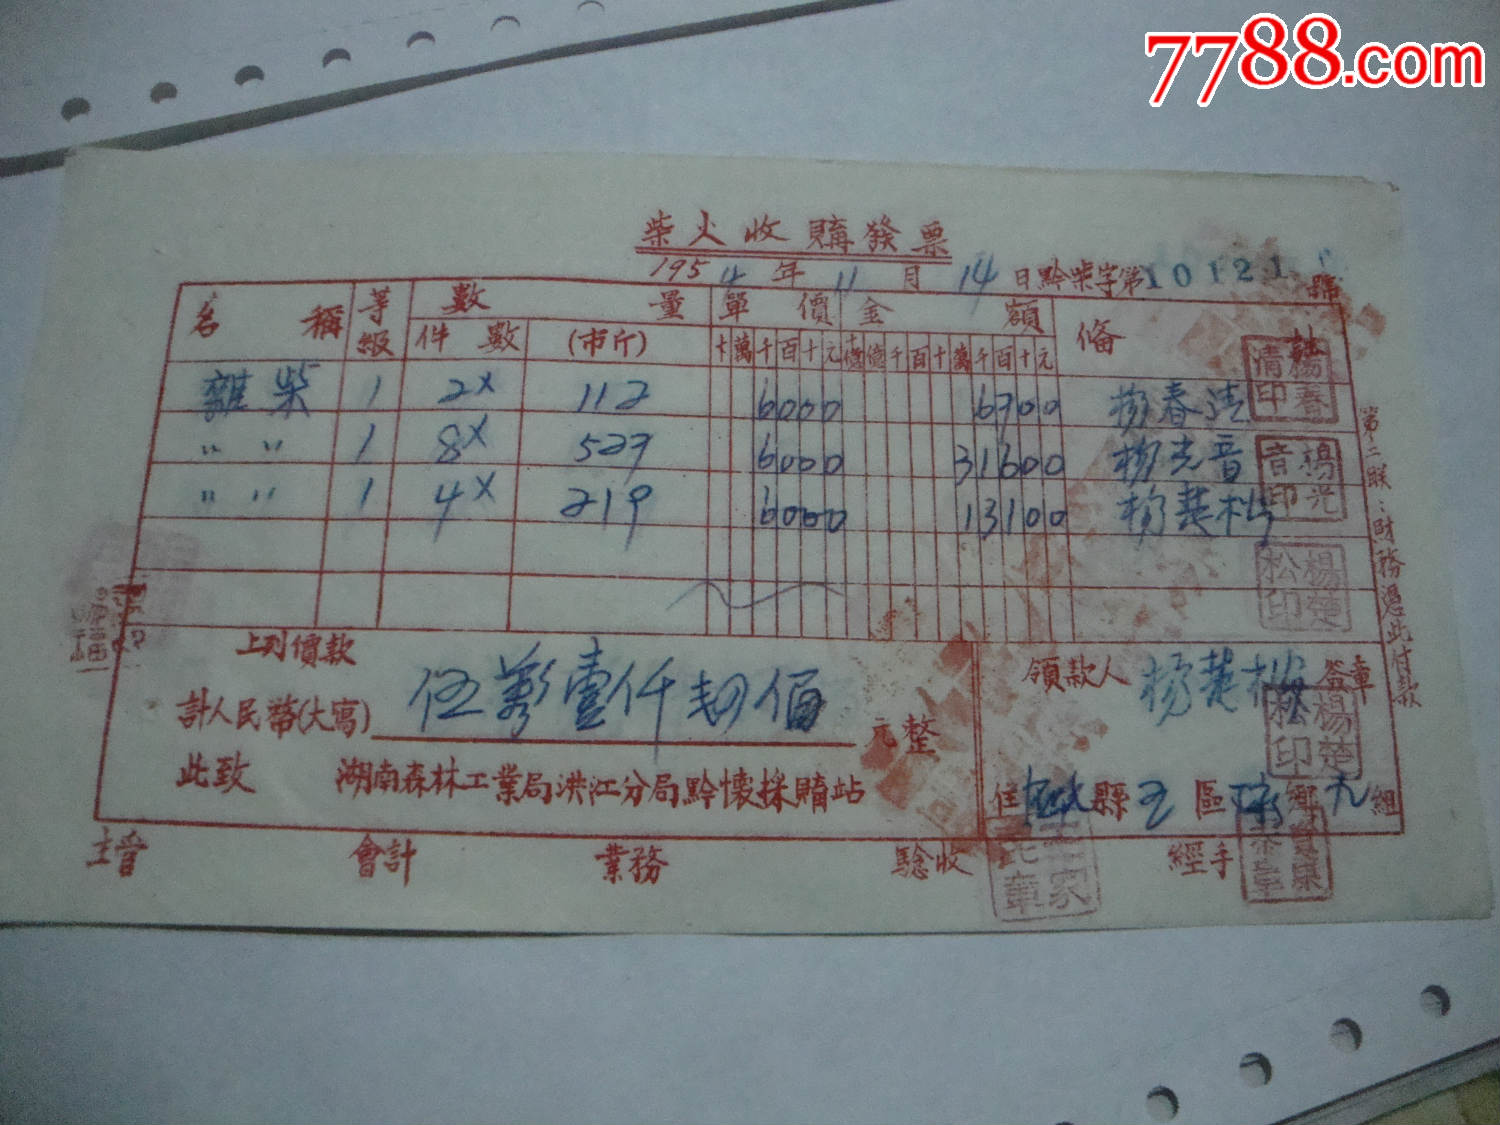 7788.com
柴火收購發票
1954年11月14日黔柴字第10121號
名稱 等級 數量 單價 金額 備註
件數 (市斤) 十萬千百十元 十億億千百十萬千百十元
雜柴 1 2X 112 6000 6700 楊春清
〃 〃 1 8X 527 6000 31600 楊光音
〃 〃 1 4X 219 6000 13100 楊楚松
楊春清印
楊光音印
楊楚松印
第二联:財務憑此付款
上列價款
計人民幣(大寫) 伍萬壹仟肆佰 元整
領款人 楊楚松 签章
楊楚松印
此致 湖南森林工業局洪江分局黔懷採購站
住 縣 五 區 鄉 九 組
主管 會計 業務 驗收 經手